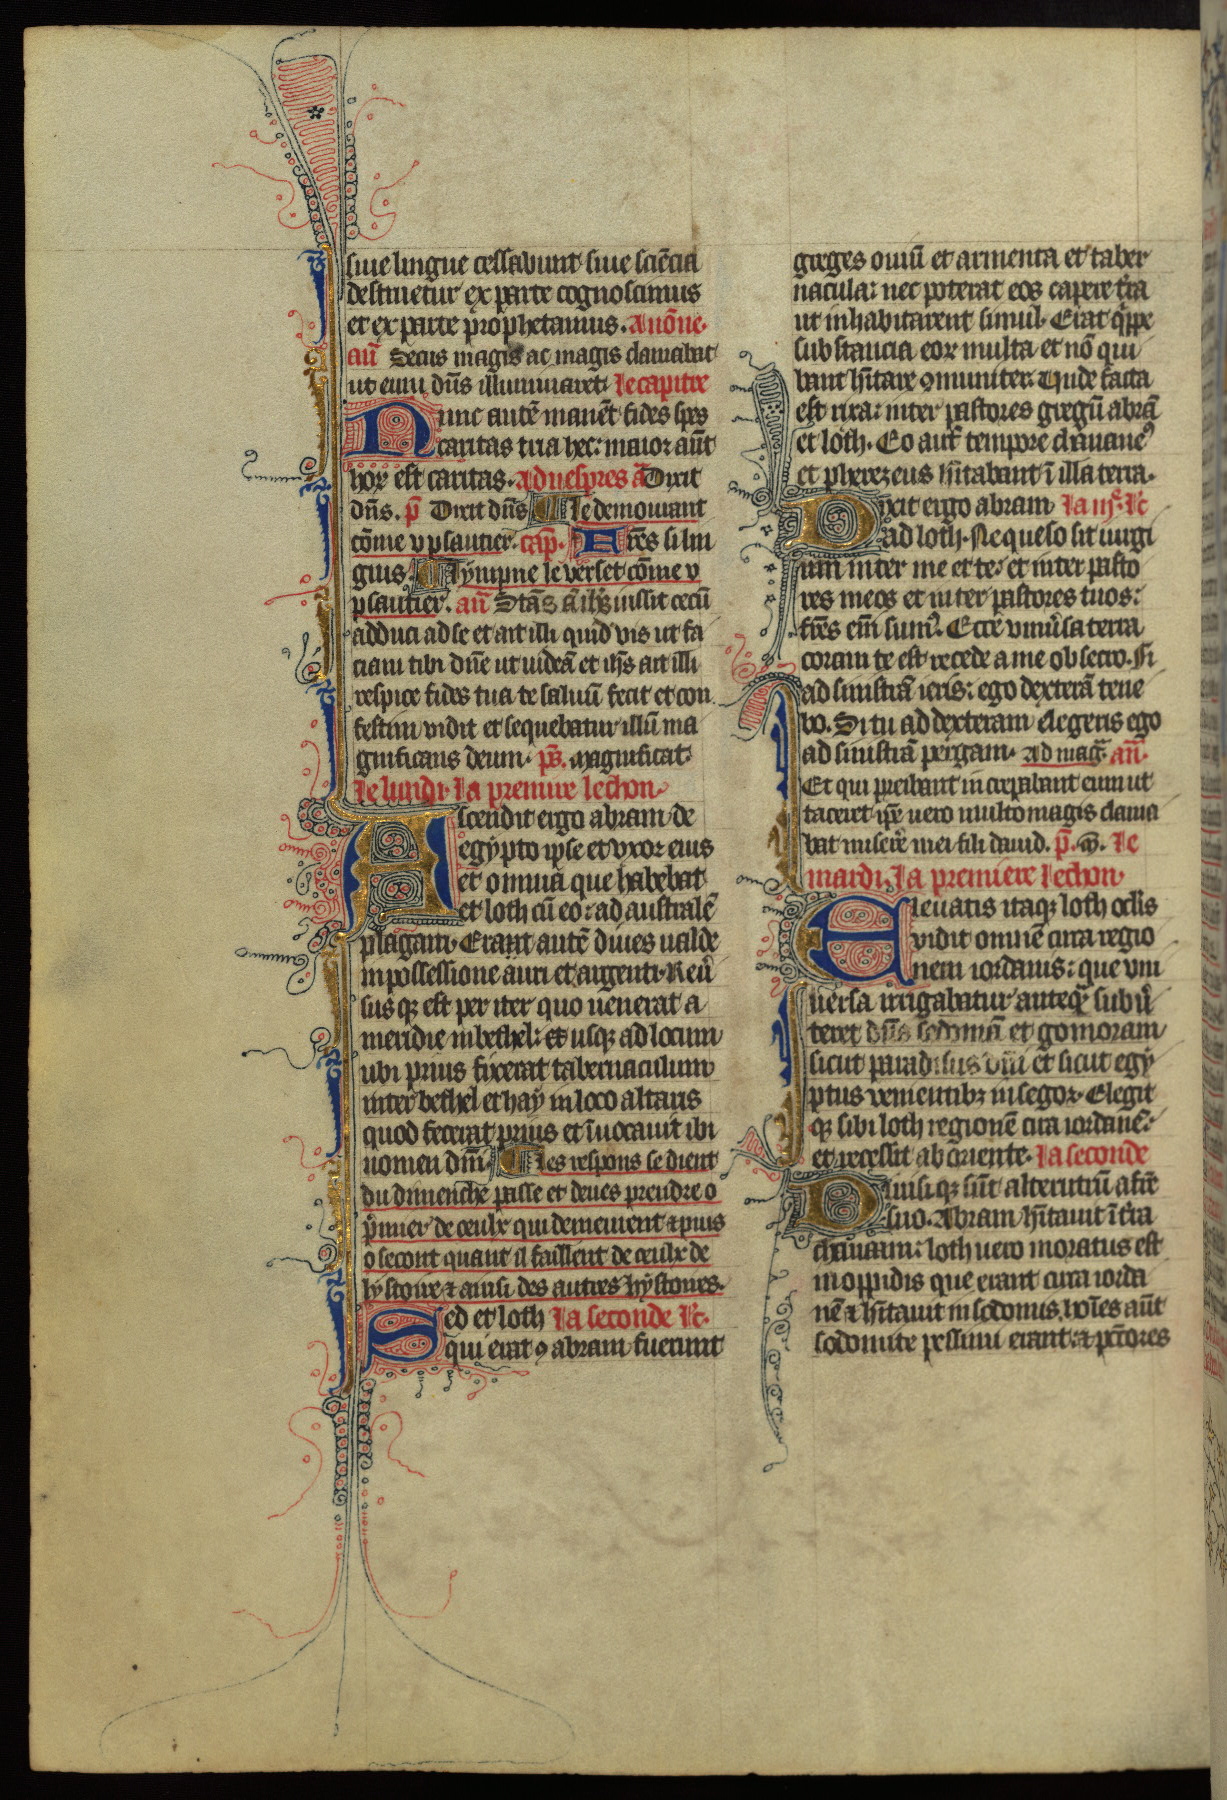 siue lingue cessabunt siue sciẽcia
destruetur ex parte cognoscimus
et ex parte prophetamus. A nõne.
añ Secus magis ac magis clamabat
ut eum dñs illuminaret. le capitre
Nunc autẽ manẽt fides spes
caritas tria hec: maior aũt
hoꝝ est caritas. A duespres ã Dixit
dñs. p̃ Dixit dñs Le demourant
cõme v psautier. cap̃. Fr̃es si lin
guis. Lympne le verset cõme v
psautier. añ Stãs ã ih̃s iussit cecũ
adduci ad se et ait illi quid vis ut fa
ciam tibi dñe ut uideã et ih̃s ait illi
respice fides tua te saluũ fecit et con
festim vidit et sequebatur illũ ma
gnificans deum. ps̃. Magnificat.
le lundi. la premiere lechon
Ascendit ergo abram de
egypto ipse et vxor eius
et omnia que habebat
et loth cũ eo: ad australẽ
plagam. Erant autẽ diues ualde
in possessione auri et argenti. Reũ
susqꝫ est per iter quo uenerat a
meridie in bethel: et usqꝫ ad locum
ubi prius fixerat tabernaculum
inter bethel et hay in loco altaris
quod fecerat prius et ĩuocauit ibi
nomen dñi. Les respons se dient
du diuenche passe et deues prendre o
p̃mier de ceulx qui demeurent ⁊ puis
o secont quant il faillent de ceulx de
lystoire ⁊ ainsi des autres hystoires.
Sed et loth la seconde lc̃.
qui erat ꝯ abram fuerunt
greges ouiũ et armenta et taber
nacula: nec poterat eos capere t̃ra
ut inhabitarent simul. Erat q̃ppe
substancia eoꝝ multa et nõ qui
bant h̃itare ꝯmuniter: Vnde facta
est rixa: inter pastores gregũ abrã
et loth. Eo aut̃ tempore chananeꝰ
et pherezeus h̃itabant ĩ illa terra.
Dixit ergo abram la iij.e lc̃
ad loth. Ne queso sit iurgi
um inter me et te: et inter pasto
res meos et inter pastores tuos:
fr̃es em̃ sumꝰ. Ecce vniũsa terra
coram te est recede a me obsecro. Si
ad sinistrã ieris: ego dexterã tene
bo. Si tu ad dexteram elegeris ego
ad sinistrã pergam. ad mag̃. añ.
Et qui preibant increpabant eum ut
taceret ip̃e uero multo magis clama
bat miserẽ mei fili dauid. p̃. m̃. le
mardi. la premiere lechon
Eleuatis itaqꝫ loth oc̃lis
vidit omnẽ circa regio
nem iordanis: que vni
uersa irrigabatur anteqꝫ subũ
teret dñs sodomã et gomoram
sicut paradisus dñi et sicut egy
ptus venientibꝫ in segor. Elegit
qꝫ sibi loth regionẽ circa iordanẽ:
et recessit ab oriente. la seconde
Diuisiqꝫ sũt alterutrũ a fr̃e
suo. Abram h̃itauit ĩ t̃ra
chanaan: loth uero moratus est
in oppidis que erant circa iorda
nẽ ⁊ h̃itauit in sodomis. hoĩes aũt
sodomite pessimi erant: ⁊ pcc̃ores